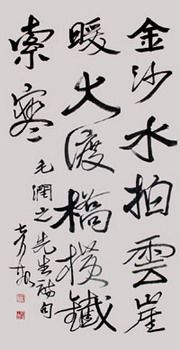 金沙水拍雲崖
暖大渡橋橫鐵
索寒
毛潤之先生詩句